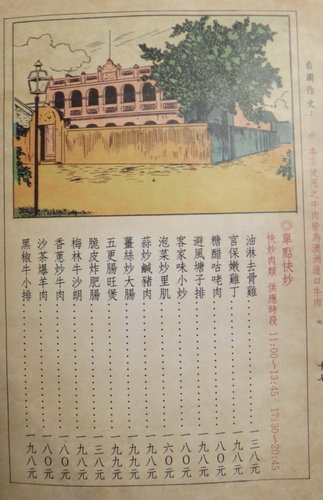 看圖作文：
※ 本店使用之牛肉皆為澳洲進口牛肉
◎單點快炒
快炒肉類 供應時段 11:00~13:45 17:30~20:45
油淋去骨雞⋯⋯⋯⋯一三八元
宮保嫩雞丁⋯⋯⋯⋯一九八元
糖醋咕咾肉⋯⋯⋯⋯一八〇元
避風塘子排⋯⋯⋯⋯一九八元
客家味小炒⋯⋯⋯⋯一八〇元
泡菜炒里肌⋯⋯⋯⋯一六〇元
蒜炒鹹豬肉⋯⋯⋯⋯一九八元
薑絲炒大腸⋯⋯⋯⋯一九八元
五更腸旺煲⋯⋯⋯⋯一九八元
脆皮炸肥腸⋯⋯⋯⋯一三八元
梅林牛沙朗⋯⋯⋯⋯一九八元
香蔥炒牛肉⋯⋯⋯⋯一八〇元
沙茶爆羊肉⋯⋯⋯⋯一八〇元
黑椒牛小排⋯⋯⋯⋯一九八元